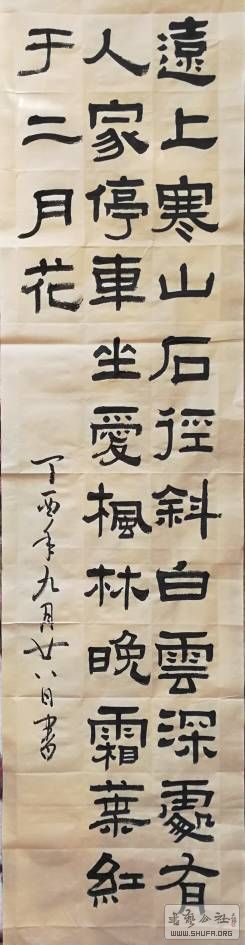 遠上寒山石徑斜白雲深處有
人家停車坐愛楓林晚霜葉紅
于二月花
丁酉年九月廿八日書
書藝公社
WWW.SHUFA.ORG